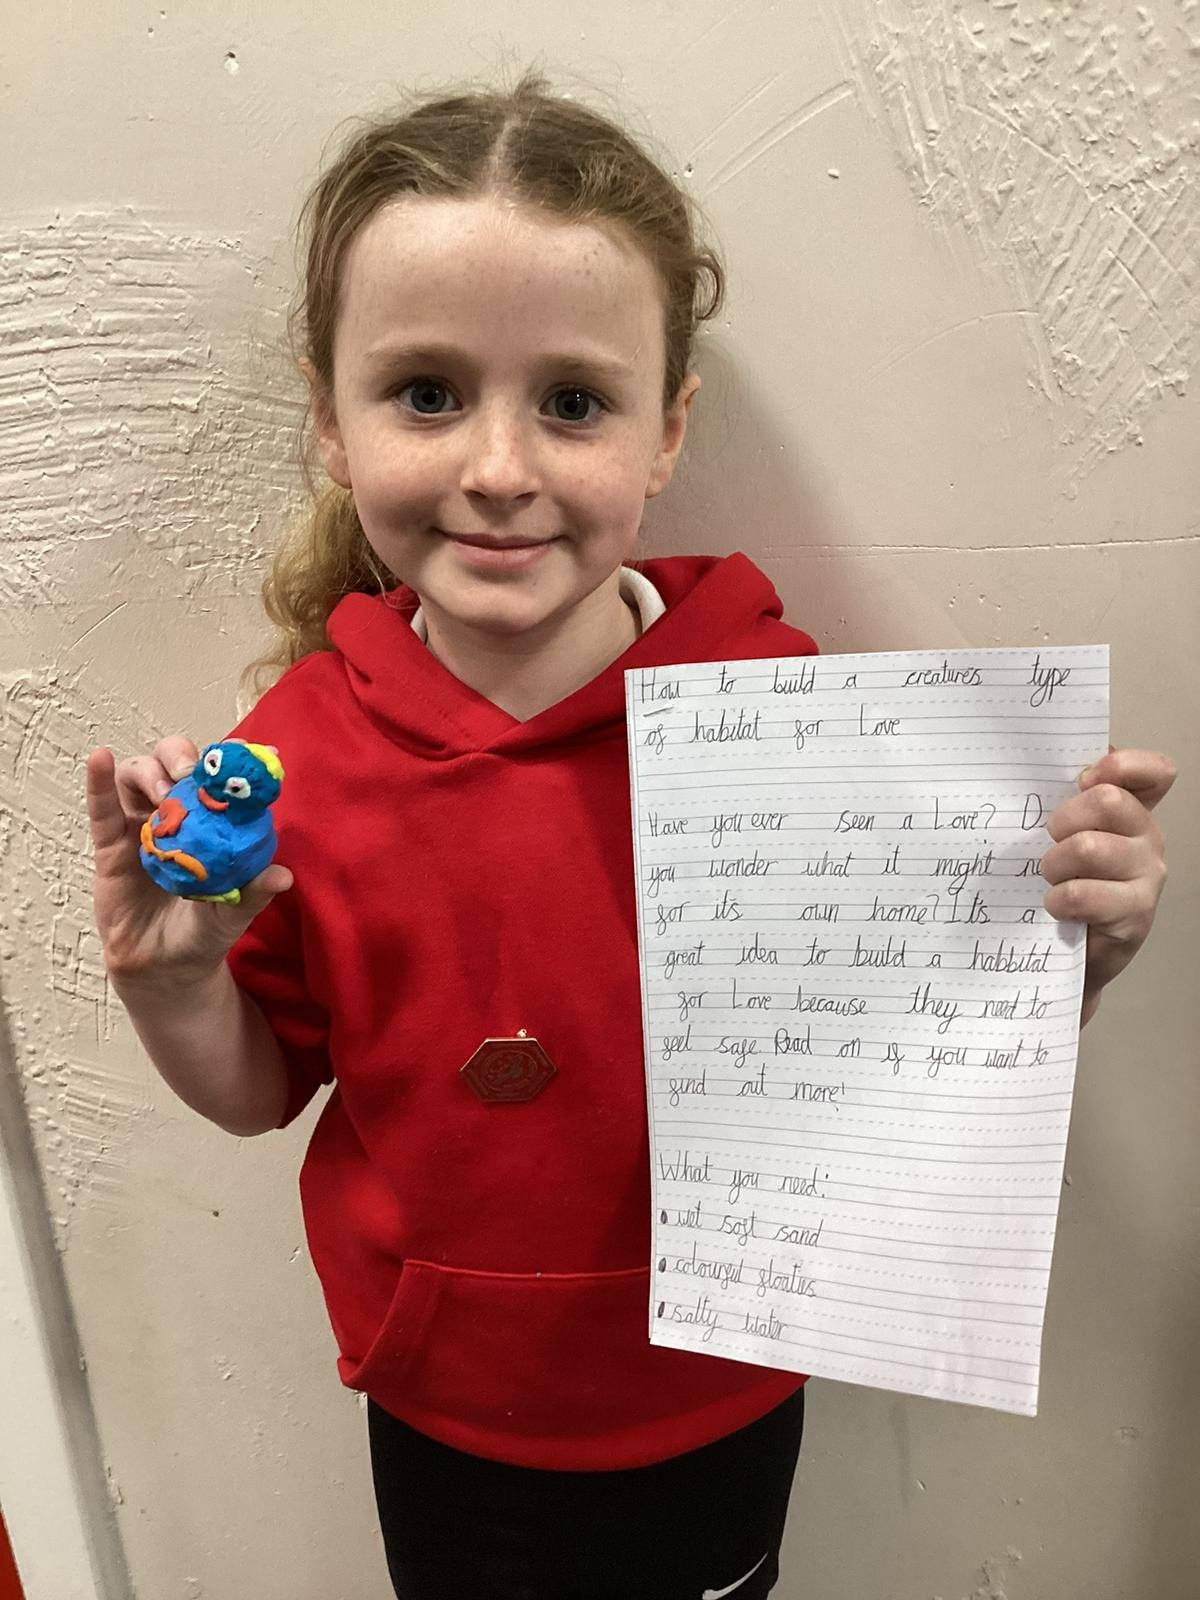 How to build a creatures type
of habitat for Love
Have you ever seen a Love? D
you wonder what it might ne
for it's own home? It's a
great idea to build a habbitat
for Love because they need to
feel safe. Read on if you want to
find out more!
What you need:
• wet soft sand
• colourful floaties
• salty water